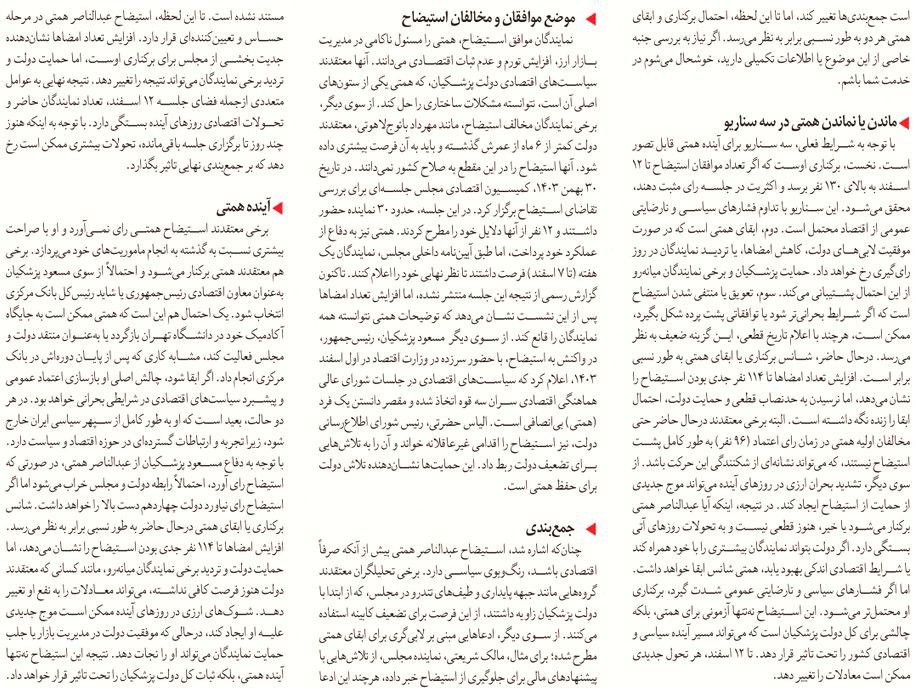 است جمع‌بندی‌ها تغییر کند، اما تا این لحظه، احتمال برکناری و ابقای
همتی هر دو به طور نسبی برابر به نظر می‌رسد. اگر نیاز به بررسی جنبه
خاصی از این موضوع یا اطلاعات تکمیلی دارید، خوشحال می‌شوم در
خدمت شما باشم.
ماندن یا نماندن همتی در سه سناریو
با توجه به شرایط فعلی، سه سناریو برای آینده همتی قابل تصور
است. نخست، برکناری اوست که اگر تعداد موافقان استیضاح تا ۱۲
اسفند به بالای ۱۳۰ نفر برسد و اکثریت در جلسه رای مثبت دهند،
محقق می‌شود. این سناریو با تداوم فشارهای سیاسی و نارضایتی
عمومی از اقتصاد محتمل است. دوم، ابقای همتی است که در صورت
موفقیت لابی‌های دولت، کاهش امضاها، یا تردید نمایندگان در روز
رای‌گیری رخ خواهد داد. حمایت پزشکیان و برخی نمایندگان میانه‌رو
از این احتمال پشتیبانی می‌کند. سوم، تعویق یا منتفی شدن استیضاح
است که اگر شرایط بحرانی‌تر شود یا توافقاتی پشت پرده شکل بگیرد،
ممکن است، هرچند با اعلام تاریخ قطعی، این گزینه ضعیف به نظر
می‌رسد. درحال حاضر، شانس برکناری یا ابقای همتی به طور نسبی
برابر است. افزایش تعداد امضاها تا ۱۱۴ نفر جدی بودن استیضاح را
نشان می‌دهد، اما نرسیدن به حدنصاب قطعی و حمایت دولت، احتمال
ابقا را زنده نگه داشته است. البته برخی معتقدند درحال حاضر حتی
مخالفان اولیه همتی در زمان رای اعتماد (۹۶ نفر) به طور کامل پشت
استیضاح نیستند، که می‌تواند نشانه‌ای از شکنندگی این حرکت باشد. از
سوی دیگر، تشدید بحران ارزی در روزهای آینده می‌تواند موج جدیدی
از حمایت از استیضاح ایجاد کند. در نتیجه، اینکه آیا عبدالناصر همتی
برکنار می‌شود یا خیر، هنوز قطعی نیست و به تحولات روزهای آتی
بستگی دارد. اگر دولت بتواند نمایندگان بیشتری را با خود همراه کند
یا شرایط اقتصادی اندکی بهبود یابد، همتی شانس ابقا خواهد داشت.
اما اگر فشارهای سیاسی و نارضایتی عمومی شدت گیرد، برکناری
او محتمل‌تر می‌شود. این استیضاح نه‌تنها آزمونی برای همتی، بلکه
چالشی برای کل دولت پزشکیان است که می‌تواند مسیر آینده سیاسی و
اقتصادی کشور را تحت تاثیر قرار دهد. تا ۱۲ اسفند، هر تحول جدیدی
ممکن است معادلات را تغییر دهد.
موضع موافقان و مخالفان استیضاح
نمایندگان موافق استیضاح، همتی را مسئول ناکامی در مدیریت
بازار ارز، افزایش تورم و عدم ثبات اقتصادی می‌دانند. آنها معتقدند
سیاست‌های اقتصادی دولت پزشکیان، که همتی یکی از ستون‌های
اصلی آن است، نتوانسته مشکلات ساختاری را حل کند. از سوی دیگر،
برخی نمایندگان مخالف استیضاح، مانند مهرداد بائوج‌لاهوتی، معتقدند
دولت کمتر از ۶ ماه از عمرش گذشته و باید به آن فرصت بیشتری داده
شود. آنها استیضاح را در این مقطع به صلاح کشور نمی‌دانند. در تاریخ
۳۰ بهمن ۱۴۰۳، کمیسیون اقتصادی مجلس جلسه‌ای برای بررسی
تقاضای استیضاح برگزار کرد. در این جلسه، حدود ۳۰ نماینده حضور
داشتند و ۱۲ نفر از آنها دلایل خود را مطرح کردند. همتی نیز به دفاع از
عملکرد خود پرداخت، اما طبق آیین‌نامه داخلی مجلس، نمایندگان یک
هفته (تا ۷ اسفند) فرصت داشتند تا نظر نهایی خود را اعلام کنند. تاکنون
گزارش رسمی از نتیجه این جلسه منتشر نشده، اما افزایش تعداد امضاها
پس از این نشست نشان می‌دهد که توضیحات همتی نتوانسته همه
نمایندگان را قانع کند. از سوی دیگر مسعود پزشکیان، رئیس‌جمهور،
در واکنش به استیضاح، با حضور سرزده در وزارت اقتصاد در اول اسفند
۱۴۰۳، اعلام کرد که سیاست‌های اقتصادی در جلسات شورای عالی
هماهنگی اقتصادی سران سه قوه اتخاذ شده و مقصر دانستن یک فرد
(همتی) بی‌انصافی است. الیاس حضرتی، رئیس شورای اطلاع‌رسانی
دولت، نیز استیضاح را اقدامی غیرعاقلانه خواند و آن را به تلاش‌هایی
برای تضعیف دولت ربط داد. این حمایت‌ها نشان‌دهنده تلاش دولت
برای حفظ همتی است.
جمع‌بندی
چنان‌که اشاره شد، استیضاح عبدالناصر همتی بیش از آنکه صرفاً
اقتصادی باشد، رنگ‌وبوی سیاسی دارد. برخی تحلیلگران معتقدند
گروه‌هایی مانند جبهه پایداری و طیف‌های تندرو در مجلس، که از ابتدا با
دولت پزشکیان زاویه داشتند، از این فرصت برای تضعیف کابینه استفاده
می‌کنند. از سوی دیگر، ادعاهایی مبنی بر لابی‌گری برای ابقای همتی
مطرح شده؛ برای مثال، مالک شریعتی، نماینده مجلس، از تلاش‌هایی با
پیشنهادهای مالی برای جلوگیری از استیضاح خبر داده، هرچند این ادعا
مستند نشده است. تا این لحظه، استیضاح عبدالناصر همتی در مرحله
حساس و تعیین‌کننده‌ای قرار دارد. افزایش تعداد امضاها نشان‌دهنده
جدیت بخشی از مجلس برای برکناری اوست، اما حمایت دولت و
تردید برخی نمایندگان می‌تواند نتیجه را تغییر دهد. نتیجه نهایی به عوامل
متعددی ازجمله فضای جلسه ۱۲ اسفند، تعداد نمایندگان حاضر و
تحولات اقتصادی روزهای آینده بستگی دارد. با توجه به اینکه هنوز
چند روز تا برگزاری جلسه باقی‌مانده، تحولات بیشتری ممکن است رخ
دهد که بر جمع‌بندی نهایی تاثیر بگذارد.
آینده همتی
برخی معتقدند استیضاح همتی رای نمی‌آورد و او با صراحت
بیشتری نسبت به گذشته به انجام ماموریت‌های خود می‌پردازد. برخی
هم معتقدند همتی برکنار می‌شود و احتمالاً از سوی مسعود پزشکیان
به‌عنوان معاون اقتصادی رئیس‌جمهوری یا شاید رئیس‌کل بانک مرکزی
انتخاب شود. یک احتمال هم این است که همتی ممکن است به جایگاه
آکادمیک خود در دانشگاه تهران بازگردد یا به‌عنوان منتقد دولت و
مجلس فعالیت کند، مشابه کاری که پس از پایان دوره‌اش در بانک
مرکزی انجام داد. اگر ابقا شود، چالش اصلی او بازسازی اعتماد عمومی
و پیشبرد سیاست‌های اقتصادی در شرایطی بحرانی خواهد بود. در هر
دو حالت، بعید است که او به طور کامل از سپهر سیاسی ایران خارج
شود، زیرا تجربه و ارتباطات گسترده‌ای در حوزه اقتصاد و سیاست دارد.
با توجه به دفاع مسعود پزشکیان از عبدالناصر همتی، در صورتی که
استیضاح رای آورد، احتمالاً رابطه دولت و مجلس خراب می‌شود اما اگر
استیضاح رای نیاورد دولت چهاردهم دست بالا را خواهد داشت. شانس
برکناری یا ابقای همتی درحال حاضر به طور نسبی برابر به نظر می‌رسد.
افزایش امضاها تا ۱۱۴ نفر جدی بودن استیضاح را نشان می‌دهد، اما
حمایت دولت و تردید برخی نمایندگان میانه‌رو، مانند کسانی که معتقدند
دولت هنوز فرصت کافی نداشته، می‌تواند معادلات را به نفع او تغییر
دهد. شوک‌های ارزی در روزهای آینده ممکن است موج جدیدی
علیه او ایجاد کند، درحالی که موفقیت دولت در مدیریت بازار یا جلب
حمایت نمایندگان می‌تواند او را نجات دهد. نتیجه این استیضاح نه‌تنها
آینده همتی، بلکه ثبات کل دولت پزشکیان را تحت تاثیر قرار خواهد داد.